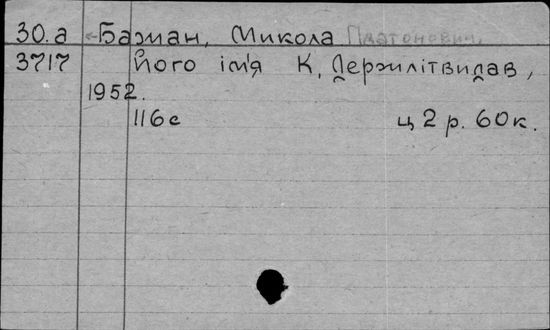 30.а Бажан, Микола Платонович.
3717 Його ім'я К, Держлітвидав,
1952.
116с ц 2 р. 60к.